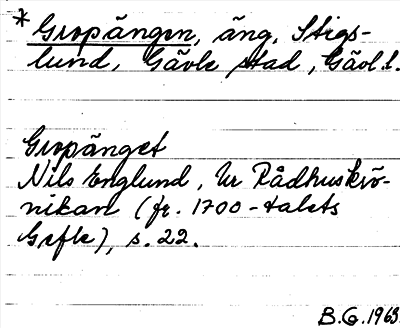 * Gropängen, äng, Stigs-
lund, Gävle stad, Gävl.l.
Gropänget
Nils Englund, Ur Rådhuskrö-
nikan (fr. 1700-talets
Gefle), s. 22.
B.G. 1963.